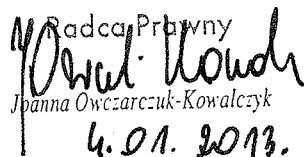 Radca Prawny
Joanna Owczarczuk-Kowalczyk
4.01.2013.